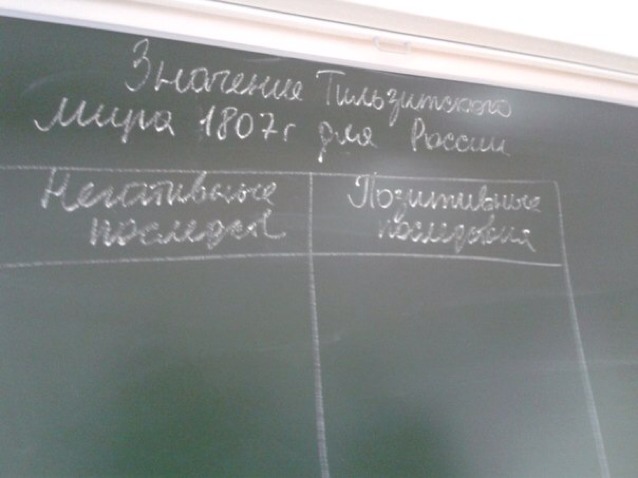 Значение Тильзитского
мира 1807г для России
Негативные
последст
Позитивные
последствия